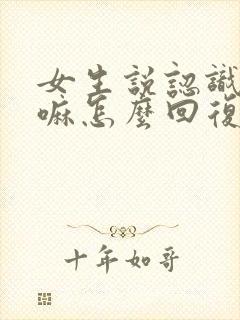 女生説認識
嘛怎麼回復
十年如哥